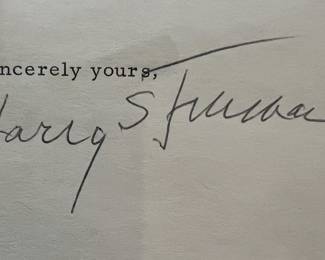 ncerely yours,
Harry S Truman